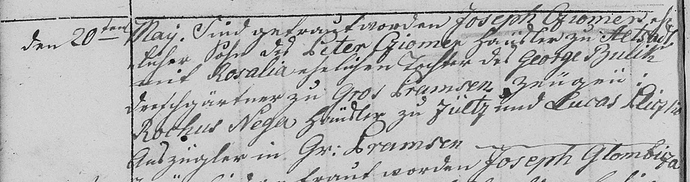 den 20ten May. Sind getraut worden Joseph Gziomer, eh-
licher Sohn des Peter Gziomer Häusler zu
mit Rosalia ehelichen Tochter des George
dreschgärtner zu Gros Pramsen. Zeugen:
Rochus Nega Händler zu Zültz und Lucas
Auszügler in Gr: Pramsen
getraut worden Joseph Glombiza